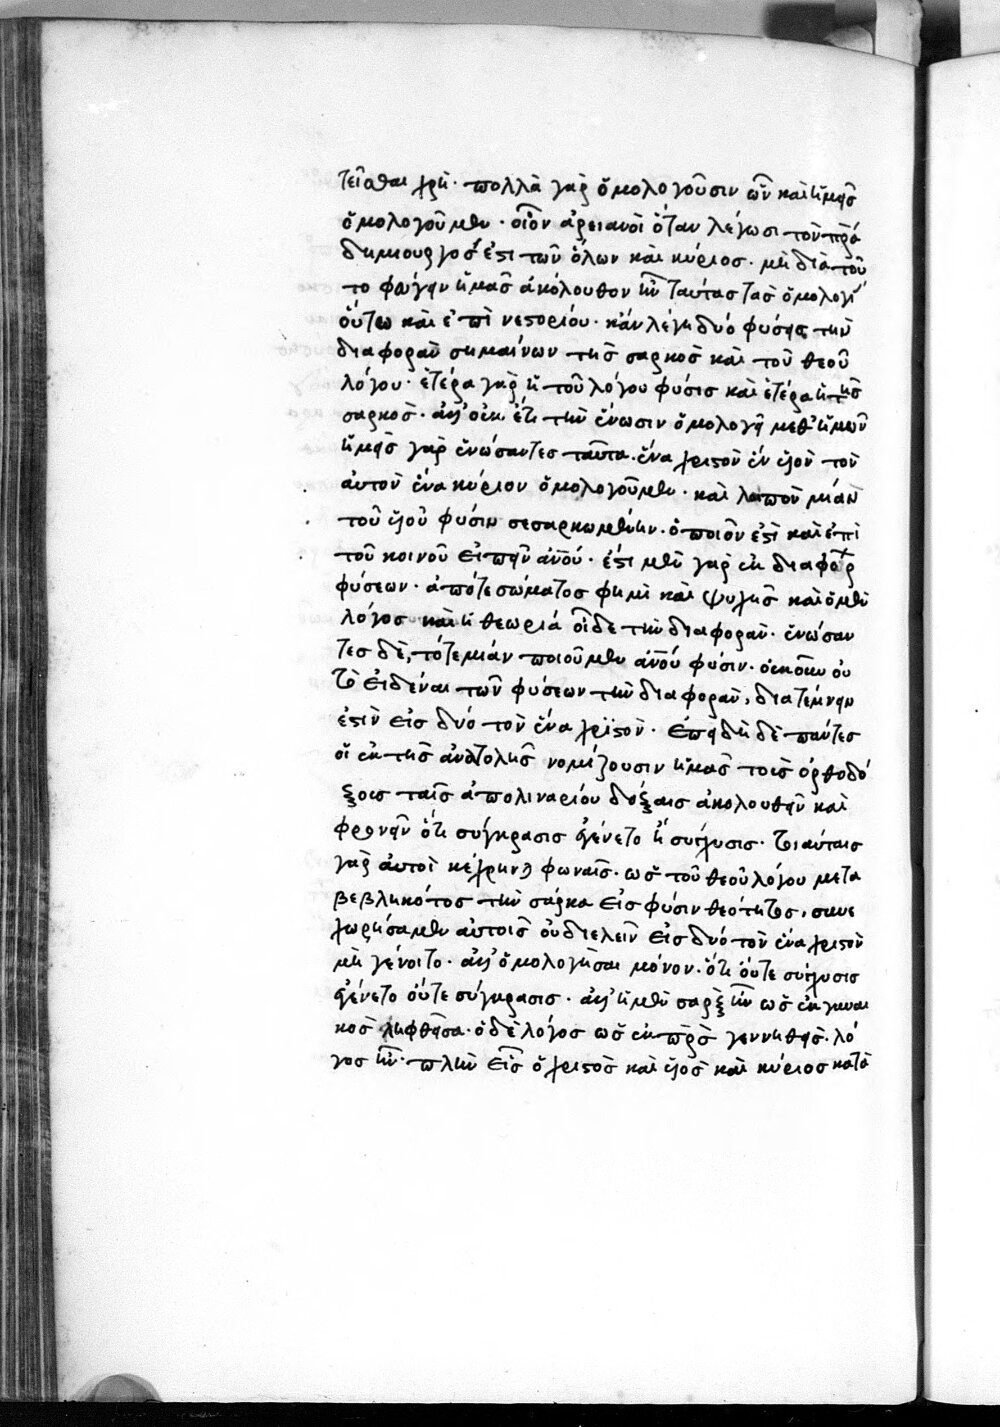 τεῖσθαι χρή· πολλὰ γὰρ ὁμολογοῦσιν ὧν καὶ ἡμεῖς
ὁμολογοῦμεν· οἷον ἀρειανοὶ ὅταν λέγωσι τὸν πρα
δημιουργός ἐστι τῶν ὅλων καὶ κύριος· μὴ διὰ τοῦ
το φεύγειν ἡμᾶς ἀκόλουθον ἦν ταύτας τὰς ὁμολογι
οὕτω καὶ ἐπὶ νεστορίου· κἂν λέγη δύο φύσεις τὴν
διαφορὰν σημαίνων τῆς σαρκὸς καὶ τοῦ θεοῦ
λόγου· ἑτέρα γὰρ ἡ τοῦ λόγου φύσις καὶ ἑτέρα ἡ τῆς
σαρκὸς· ἀλλ' οὐκ ἔτι τὴν ἕνωσιν ὁμολογεῖ μεθ' ἡμῶν
ἡμεῖς γὰρ ἑνώσαντες ταῦτα· ἕνα χριστὸν ἓν υἱὸν τὸν
αὐτὸν ἕνα κύριον ὁμολογοῦμεν· καὶ λοιπὸν μίαν
τοῦ υἱοῦ φύσιν σεσαρκωμένην· ὁποῖον ἐστὶ καὶ ἐπὶ
τοῦ κοινοῦ εἰπεῖν ἀνου· ἔστι μὲν γὰρ ἐκ διαφόρ
φύσεων· ἀπό τε σώματος φημὶ καὶ ψυχῆς καὶ ὁ μὲν
λόγος καὶ ἡ θεωρία οἶδε τὴν διαφορὰν· ἑνώσαν
τες δὲ, τότε μίαν ποιοῦμεν ἀνου φύσιν· οὐκοῦν οὐ
τὸ εἰδέναι τῶν φύσεων τὴν διαφορὰν, διατέμνειν
ἐστὶν εἰς δύο τὸν ἕνα χριστὸν· ἐπειδὴ δὲ πάντες
οἱ ἐκ τῆς ἀνατολῆς νομίζουσιν ἡμᾶς τοῖς ὀρθοδό
ξοις ταῖς ἀπολιναρίου δόξαις ἀκολουθεῖν καὶ
φρονεῖν ὅτι σύγκρασις ἐγένετο ἢ σύγχυσις· τοιαύταις
γὰρ αὐτοὶ κέχρηνται φωναῖς· ὡς τοῦ θεοῦ λόγου μετα
βεβληκότος τὴν σάρκα εἰς φύσιν θεότητος, συνε
χωρήσαμεν αὐτοῖς οὐ διελεῖν εἰς δύο τὸν ἕνα χριστὸν
μὴ γένοιτο· ἀλλ' ὁμολογῆσαι μόνον· ὅτι οὔτε σύγχυσις
ἐγένετο οὔτε σύγκρασις· ἀλλ' ἡ μὲν σὰρξ ἦν ὡς ἐκ γυναι
κὸς ληφθεῖσα· ὁ δὲ λόγος ὡς ἐκ πρς γεννηθεὶς· λό
γος ἦν· πλὴν εἷς ὁ χριστὸς καὶ υἱὸς καὶ κύριος κατὰ